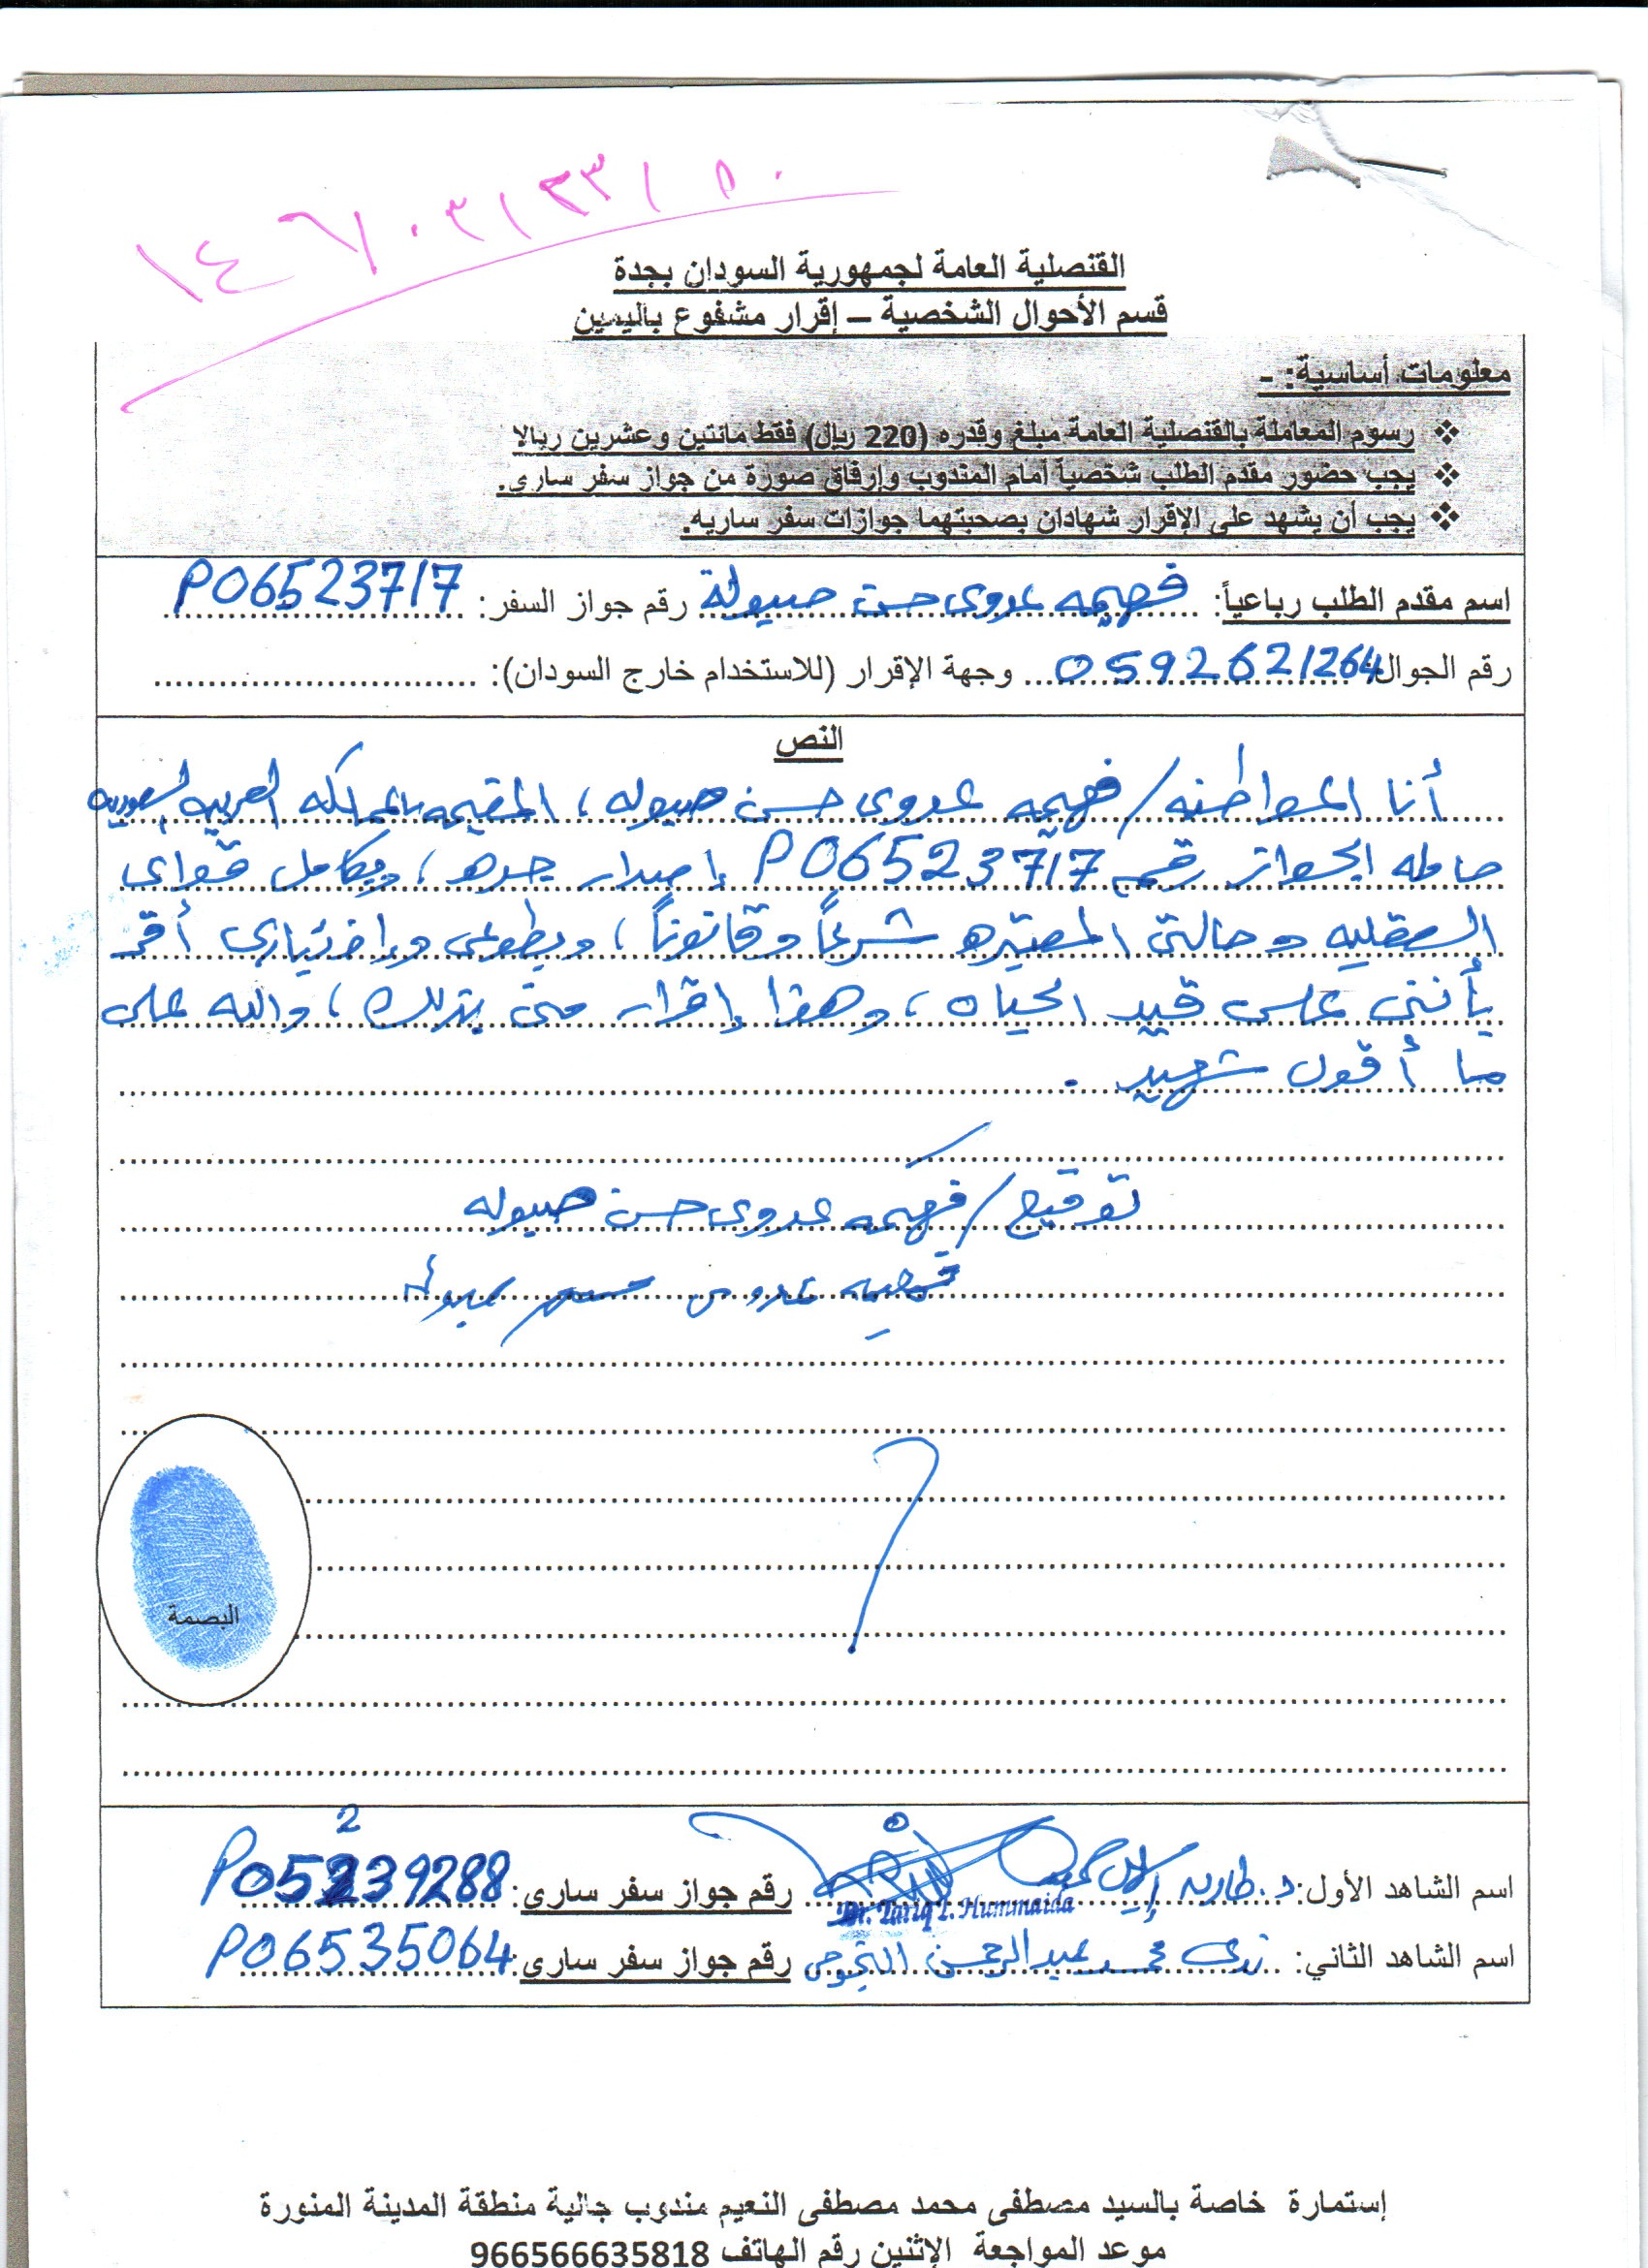 ١٤٦٠٣١٣٣١٥٠
القنصلية العامة لجمهورية السودان بجدة
قسم الأحوال الشخصية – إقرار مشفوع باليمين
معلومات أساسية: -
❖ رسوم المعاملة بالقنصلية العامة مبلغ وقدره (220 ريال) فقط مائتين وعشرين ريالا
❖ يجب حضور مقدم الطلب شخصياً أمام المندوب وإرفاق صورة من جواز سفر سارى.
❖ يجب أن يشهد على الإقرار شهادان بصحبتهما جوازات سفر ساريه.
اسم مقدم الطلب رباعياً: فهيمه عدوى حسن صبولة رقم جواز السفر: P06523717
رقم الجوال: 0592621264 وجهة الإقرار (للاستخدام خارج السودان):
النص
أنا المواطنه / فهيمه عدوى حسن صبوله، المقيمه بالمملكه العربيه السعوديه
حامله الجواز رقم P06523717 إصدار جده، وبكامل قواى
العقليه وحالتى المعتبره شرعاً وقانوناً، وبطوعى وإختيارى أقر
بأننى على قيد الحياه، وهذا إقرار منى بذلك، والله على
ما أقول شهيد.
توقيع / فهيمه عدوى حسن صبوله
فهيمه عدوى حسن صبوله
البصمة
2
اسم الشاهد الأول: د. طارق رقم جواز سفر سارى: P05239288
Dr. Tariq I. Hummaida
اسم الشاهد الثاني: محمد عبدالرحمن رقم جواز سفر سارى: P06535064
إستمارة خاصة بالسيد مصطفى محمد مصطفى النعيم مندوب جالية منطقة المدينة المنورة
موعد المواجعة الإثنين رقم الهاتف 966566635818